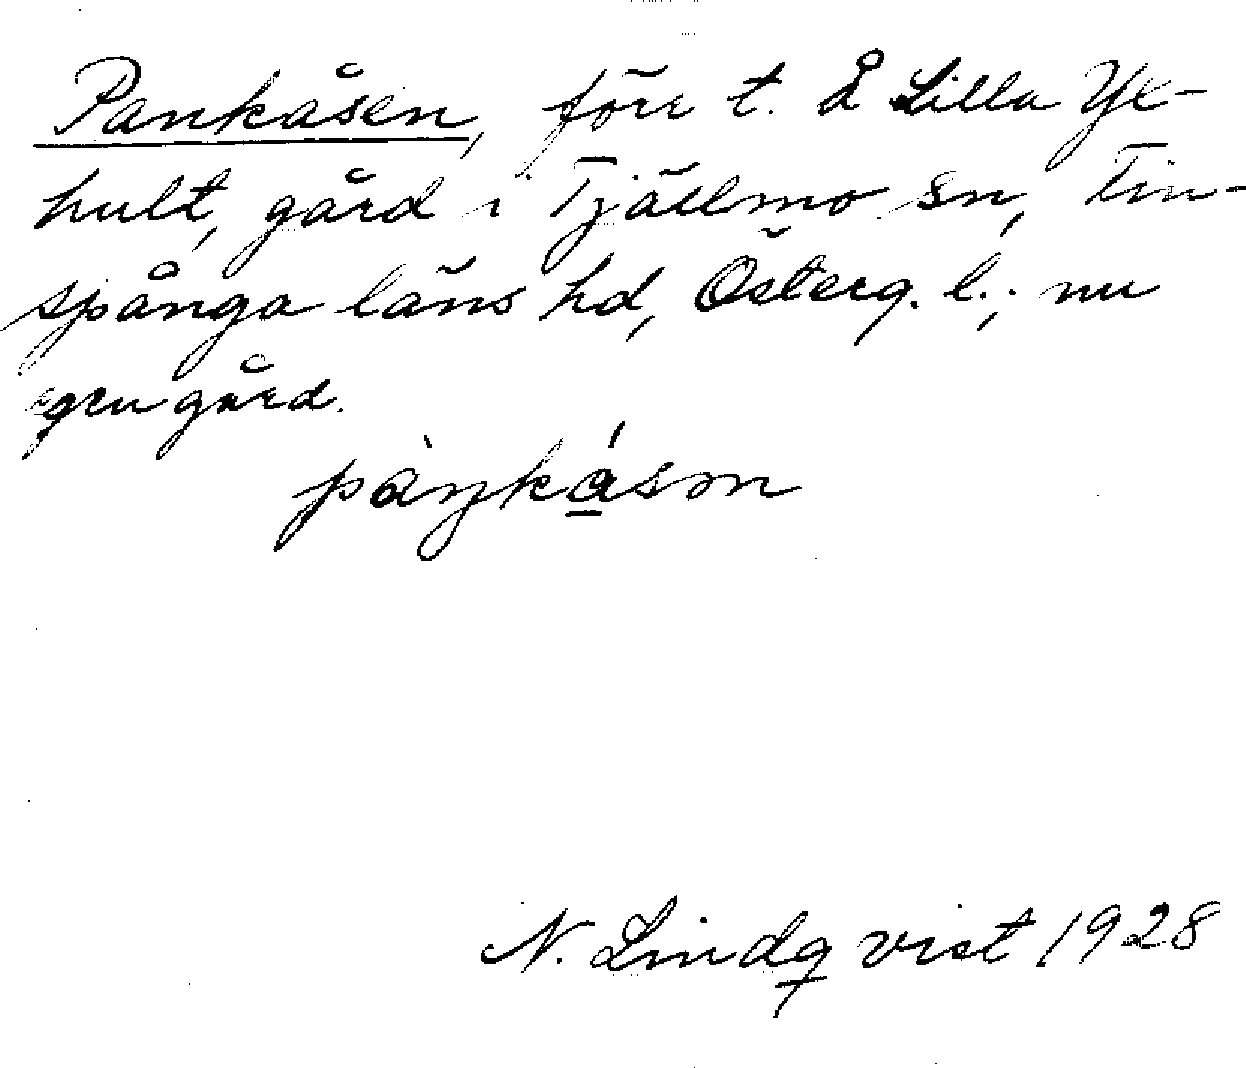 Pankåsen, förr t. å Lilla Yx-
hult, gård i Tjällmo sn, Fin-
spånga läns hd, Österg. l.; nu
egen gård.
pàŋkásən
N. Lindqvist 1928